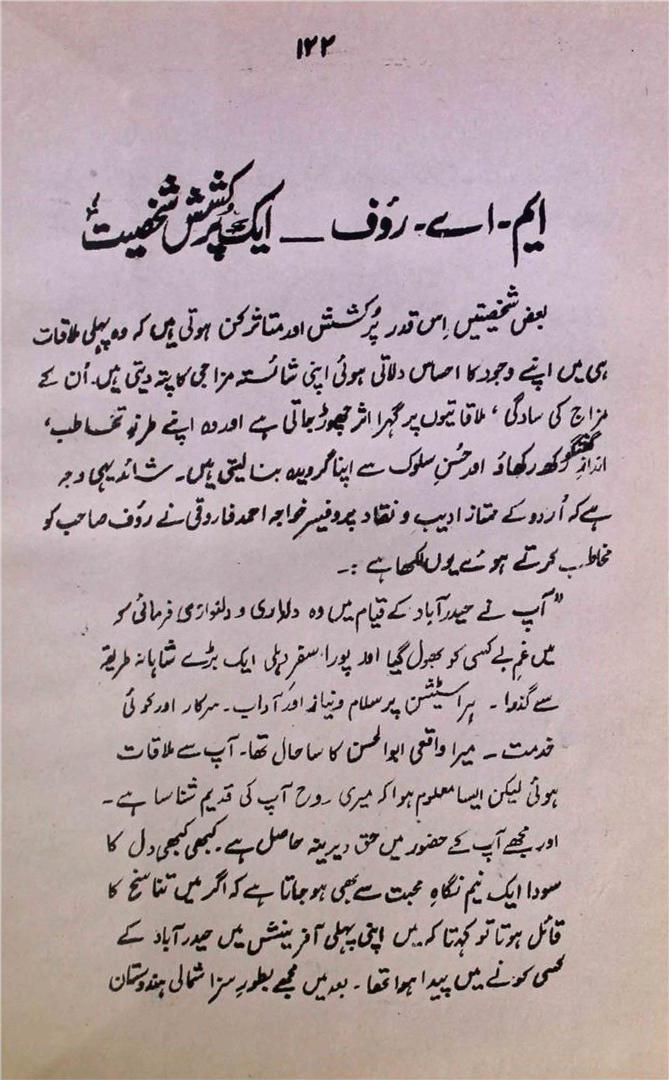 ۱۲۲
ایم۔اے۔رؤف — ایک پُرکشش شخصیت
بعض شخصیتیں اِس قدر پُرکشش اور متاثر کن ہوتی ہیں کہ وہ پہلی ملاقات
ہی میں اپنے وجود کا احساس دلاتی ہوئی اپنی شائستہ مزاجی کا پتہ دیتی ہیں۔ اُن کے
مزاج کی سادگی، ملاقاتیوں پر گہرا اثر چھوڑ جاتی ہے اور وہ اپنے طرزِ تخاطب،
اندازِ گفتگو رکھ رکھاؤ اور حُسنِ سلوک سے اپنا گرویدہ بنا لیتی ہیں۔ شائد یہی وجہ
ہے کہ اُردو کے ممتاز ادیب و نقاد پروفیسر خواجہ احمد فاروقی نے رؤف صاحب کو
مخاطب کرتے ہوئے یوں لکھا ہے :۔
"آپ نے حیدرآباد کے قیام میں وہ دلداری و دلنوازی فرمائی کہ
میں غمِ بے کسی کو بھول گیا اور پورا سفر دہلی ایک بڑے شاہانہ طریقہ
سے گذرا ۔ ہر اسٹیشن پر سلام و نیاز اور آداب۔ سرکار اور کوئی
خدمت ۔ میرا واقعی ابوالحسن کا سا حال تھا۔ آپ سے ملاقات
ہوئی لیکن ایسا معلوم ہوا کہ میری روح آپ کی قدیم شناسا ہے۔
اور مجھے آپ کے حضور میں حق دیرینہ حاصل ہے۔ کبھی کبھی دل کا
سودا ایک نیم نگاہِ محبت سے بھی ہو جاتا ہے کہ اگر میں تناسخ کا
قائل ہوتا تو کہتا کہ میں اپنی پہلی آفرینش میں حیدرآباد کے
کسی کونے میں پیدا ہوا تھا ۔ بعد میں مجھے بطورِ سزا شمالی ہندوستان